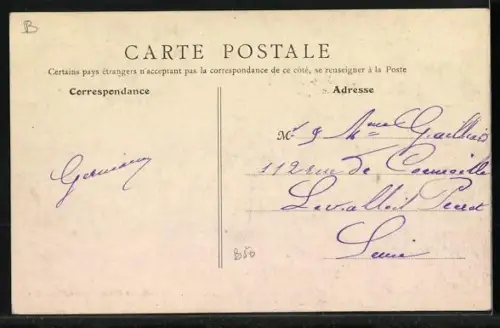 B
CARTE POSTALE
Certains pays étrangers n'acceptant pas la correspondance de ce côté, se renseigner à la Poste
Correspondance
Adresse
M
112 rue de
Levallois Perret
Seine
B50